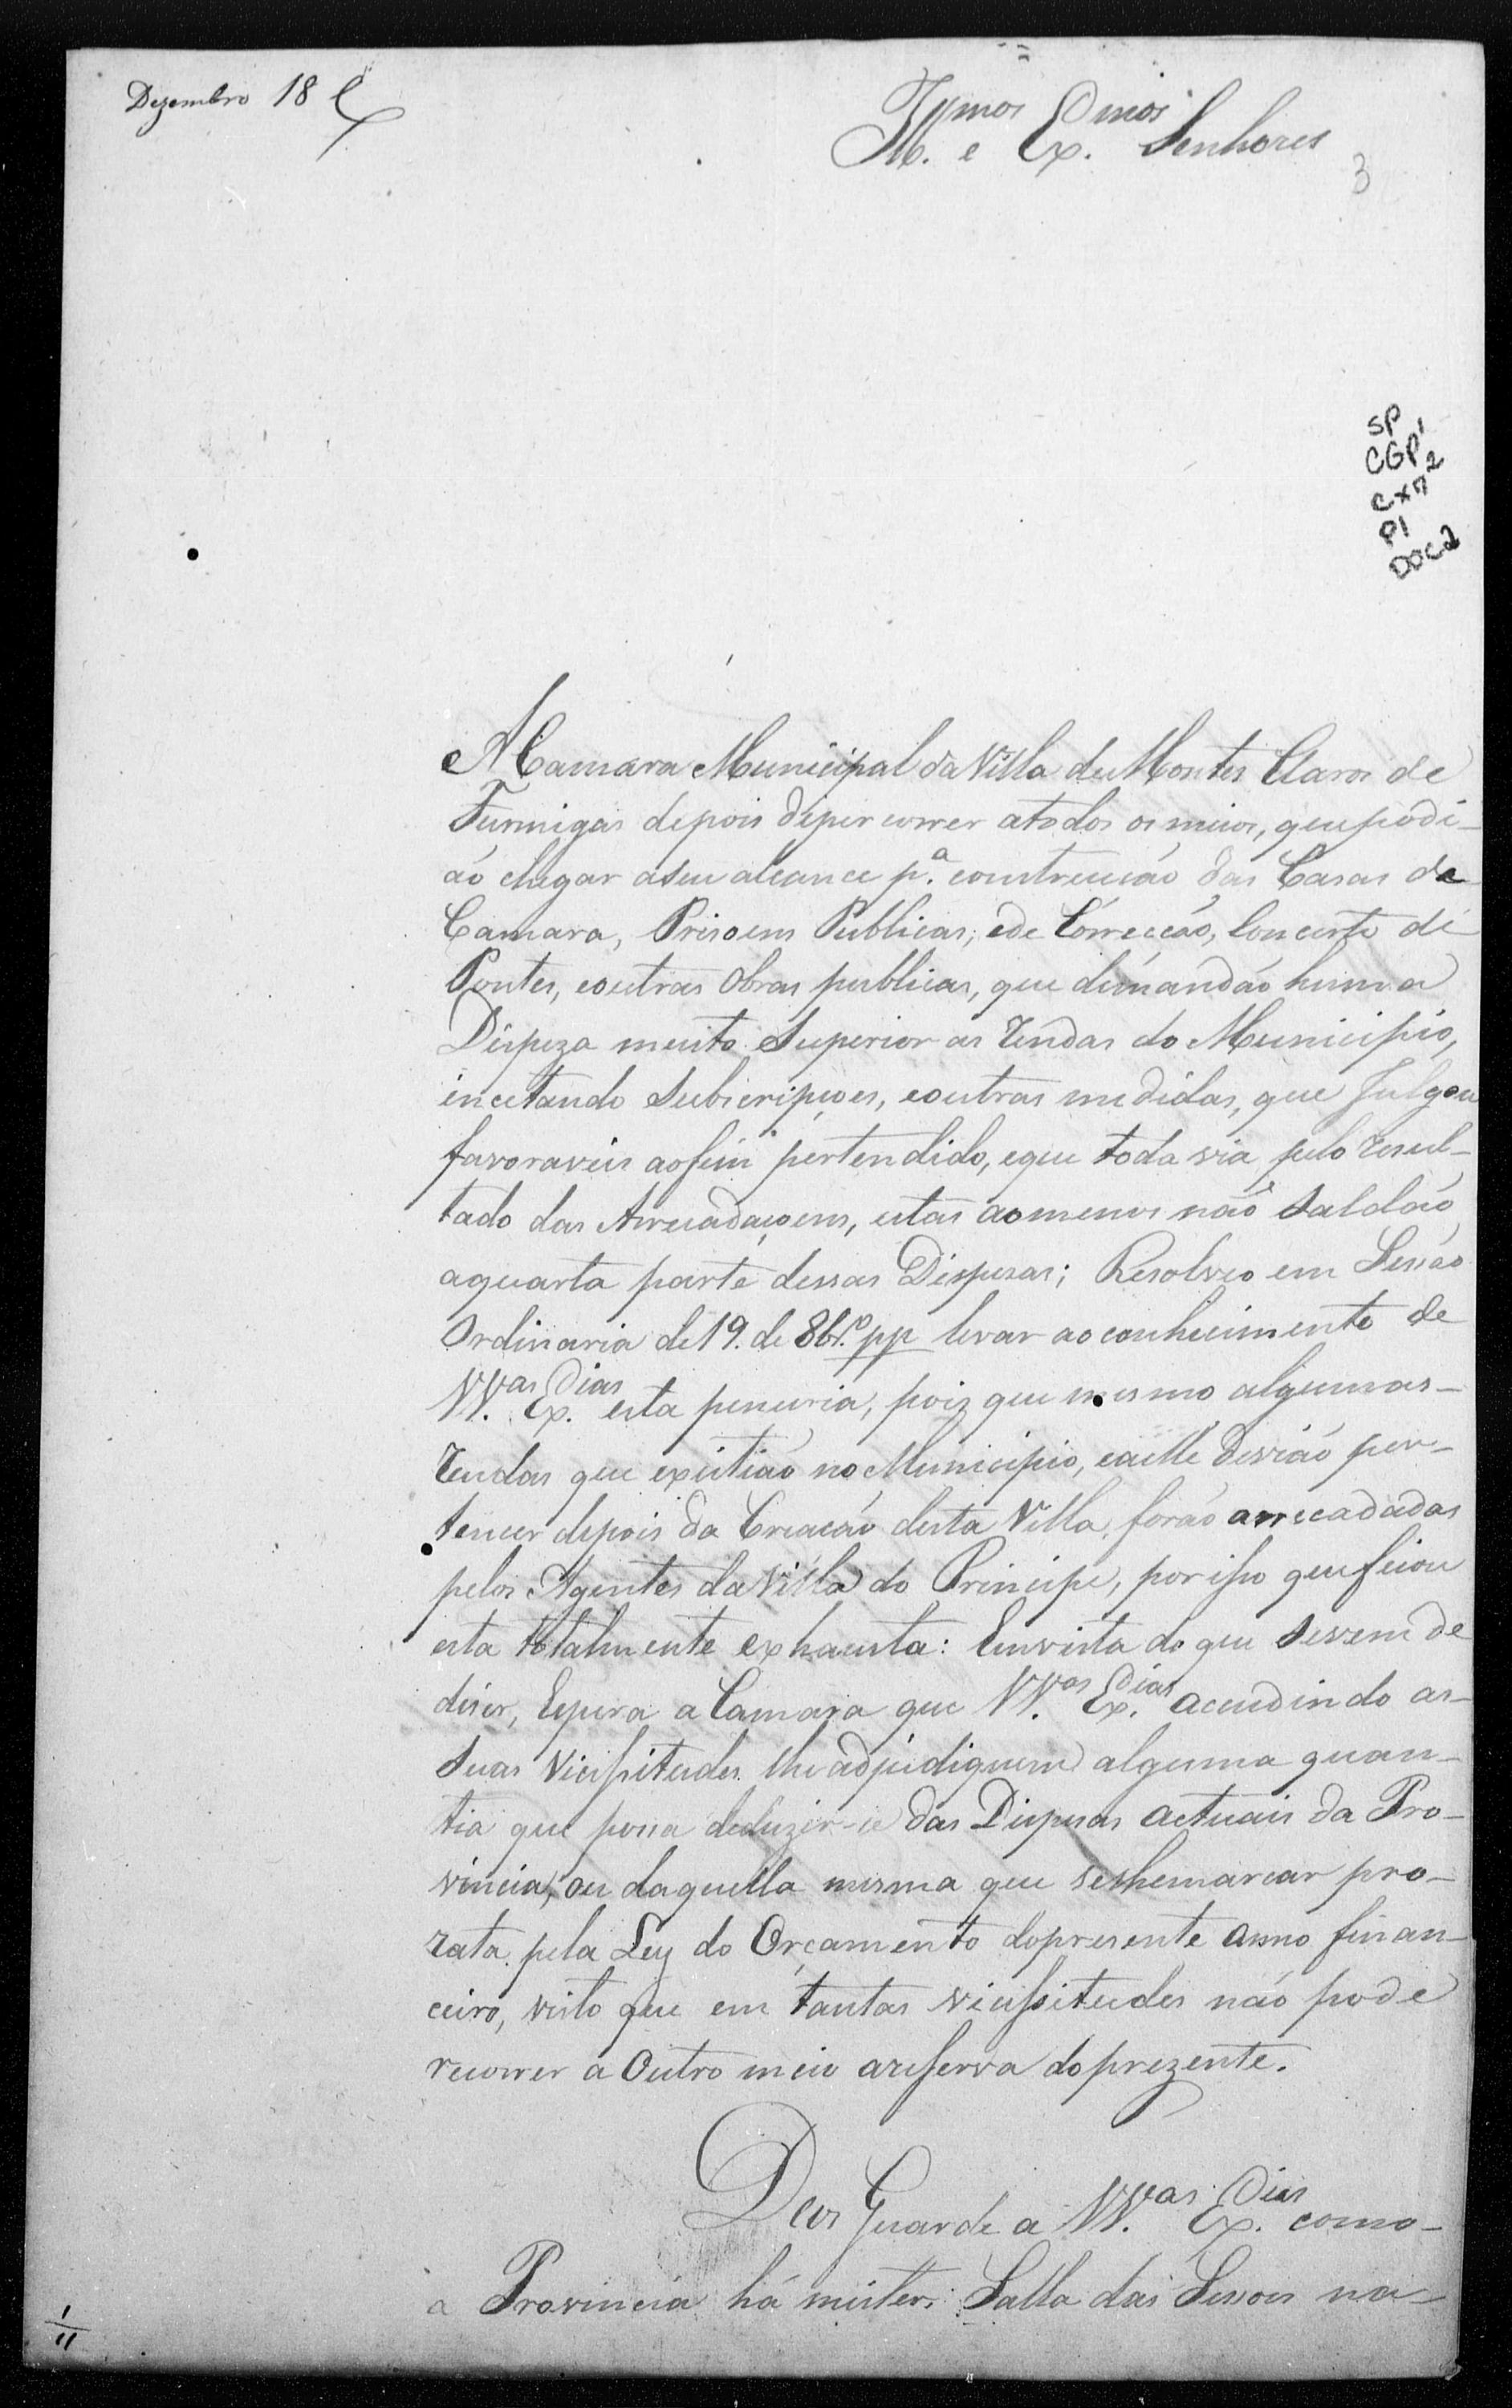 Dezembro 18
Illmos e Exmos Senhores
3
SP
CGP1
CX72
P1
DOC2
A Camara Municipal da Villa de Montes Claros de
Furmigas depois deper correr atodos os meios, que podi-
áo chegar aseu alcance pª. construcçáo das Casas da
Camara, Prisoens Publicas, ede Correcçáo, Concerto de
Pontes, eoutras Obras publicas, que demandáo huma
Dispeza muito Superior as Rendas do Municipio,
incetando Subscripçoes, eoutras medidas, que Julgou
favoraveis aofim pertendido, eque toda via pelo resul-
tado das Arrecadaçoens, estas aomenos náo Saldáo
aquarta parte dessas Dispesas; Resolveo em Sessáo
Ordinaria de 19. de 8brº. pp levar ao conhecimento de
VVas. Exdias. esta penuria, pois que mesmo algumas-
Rendas que existiáo no Municipio, eaelle deviáo per-
tencer depois da Creaçáo desta Villa, foráo arrecadadas
pelos Agentes da Villa do Principe, por isso que ficou
esta totalmente exhausta: Emvista do que sevem de
diser, Espera a Camara que VVas. Exdias. acudindo as-
suas Vicissitudes lhe adjudiquem alguma quan-
tia que possa deduzir-se das Dispesas actuais da Pro-
vincia, ou daquella mesma que selhemarcar pro-
rata pela Ley do Orçamento dopresente anno finan-
ceiro, visto que em tantas vicissitudes náo pode
recorrer a Outro meio areserva doprezente.
Deos Guarde a VVas. Exdias. como-
a Provincia há mister. Salla das Sessoes na-
1
11